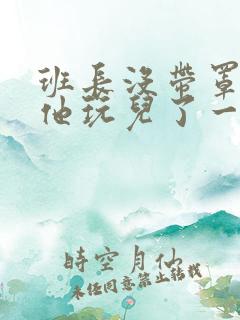 班長沒帶罩
他玩兒了一
時空月仙
未经同意禁止转载